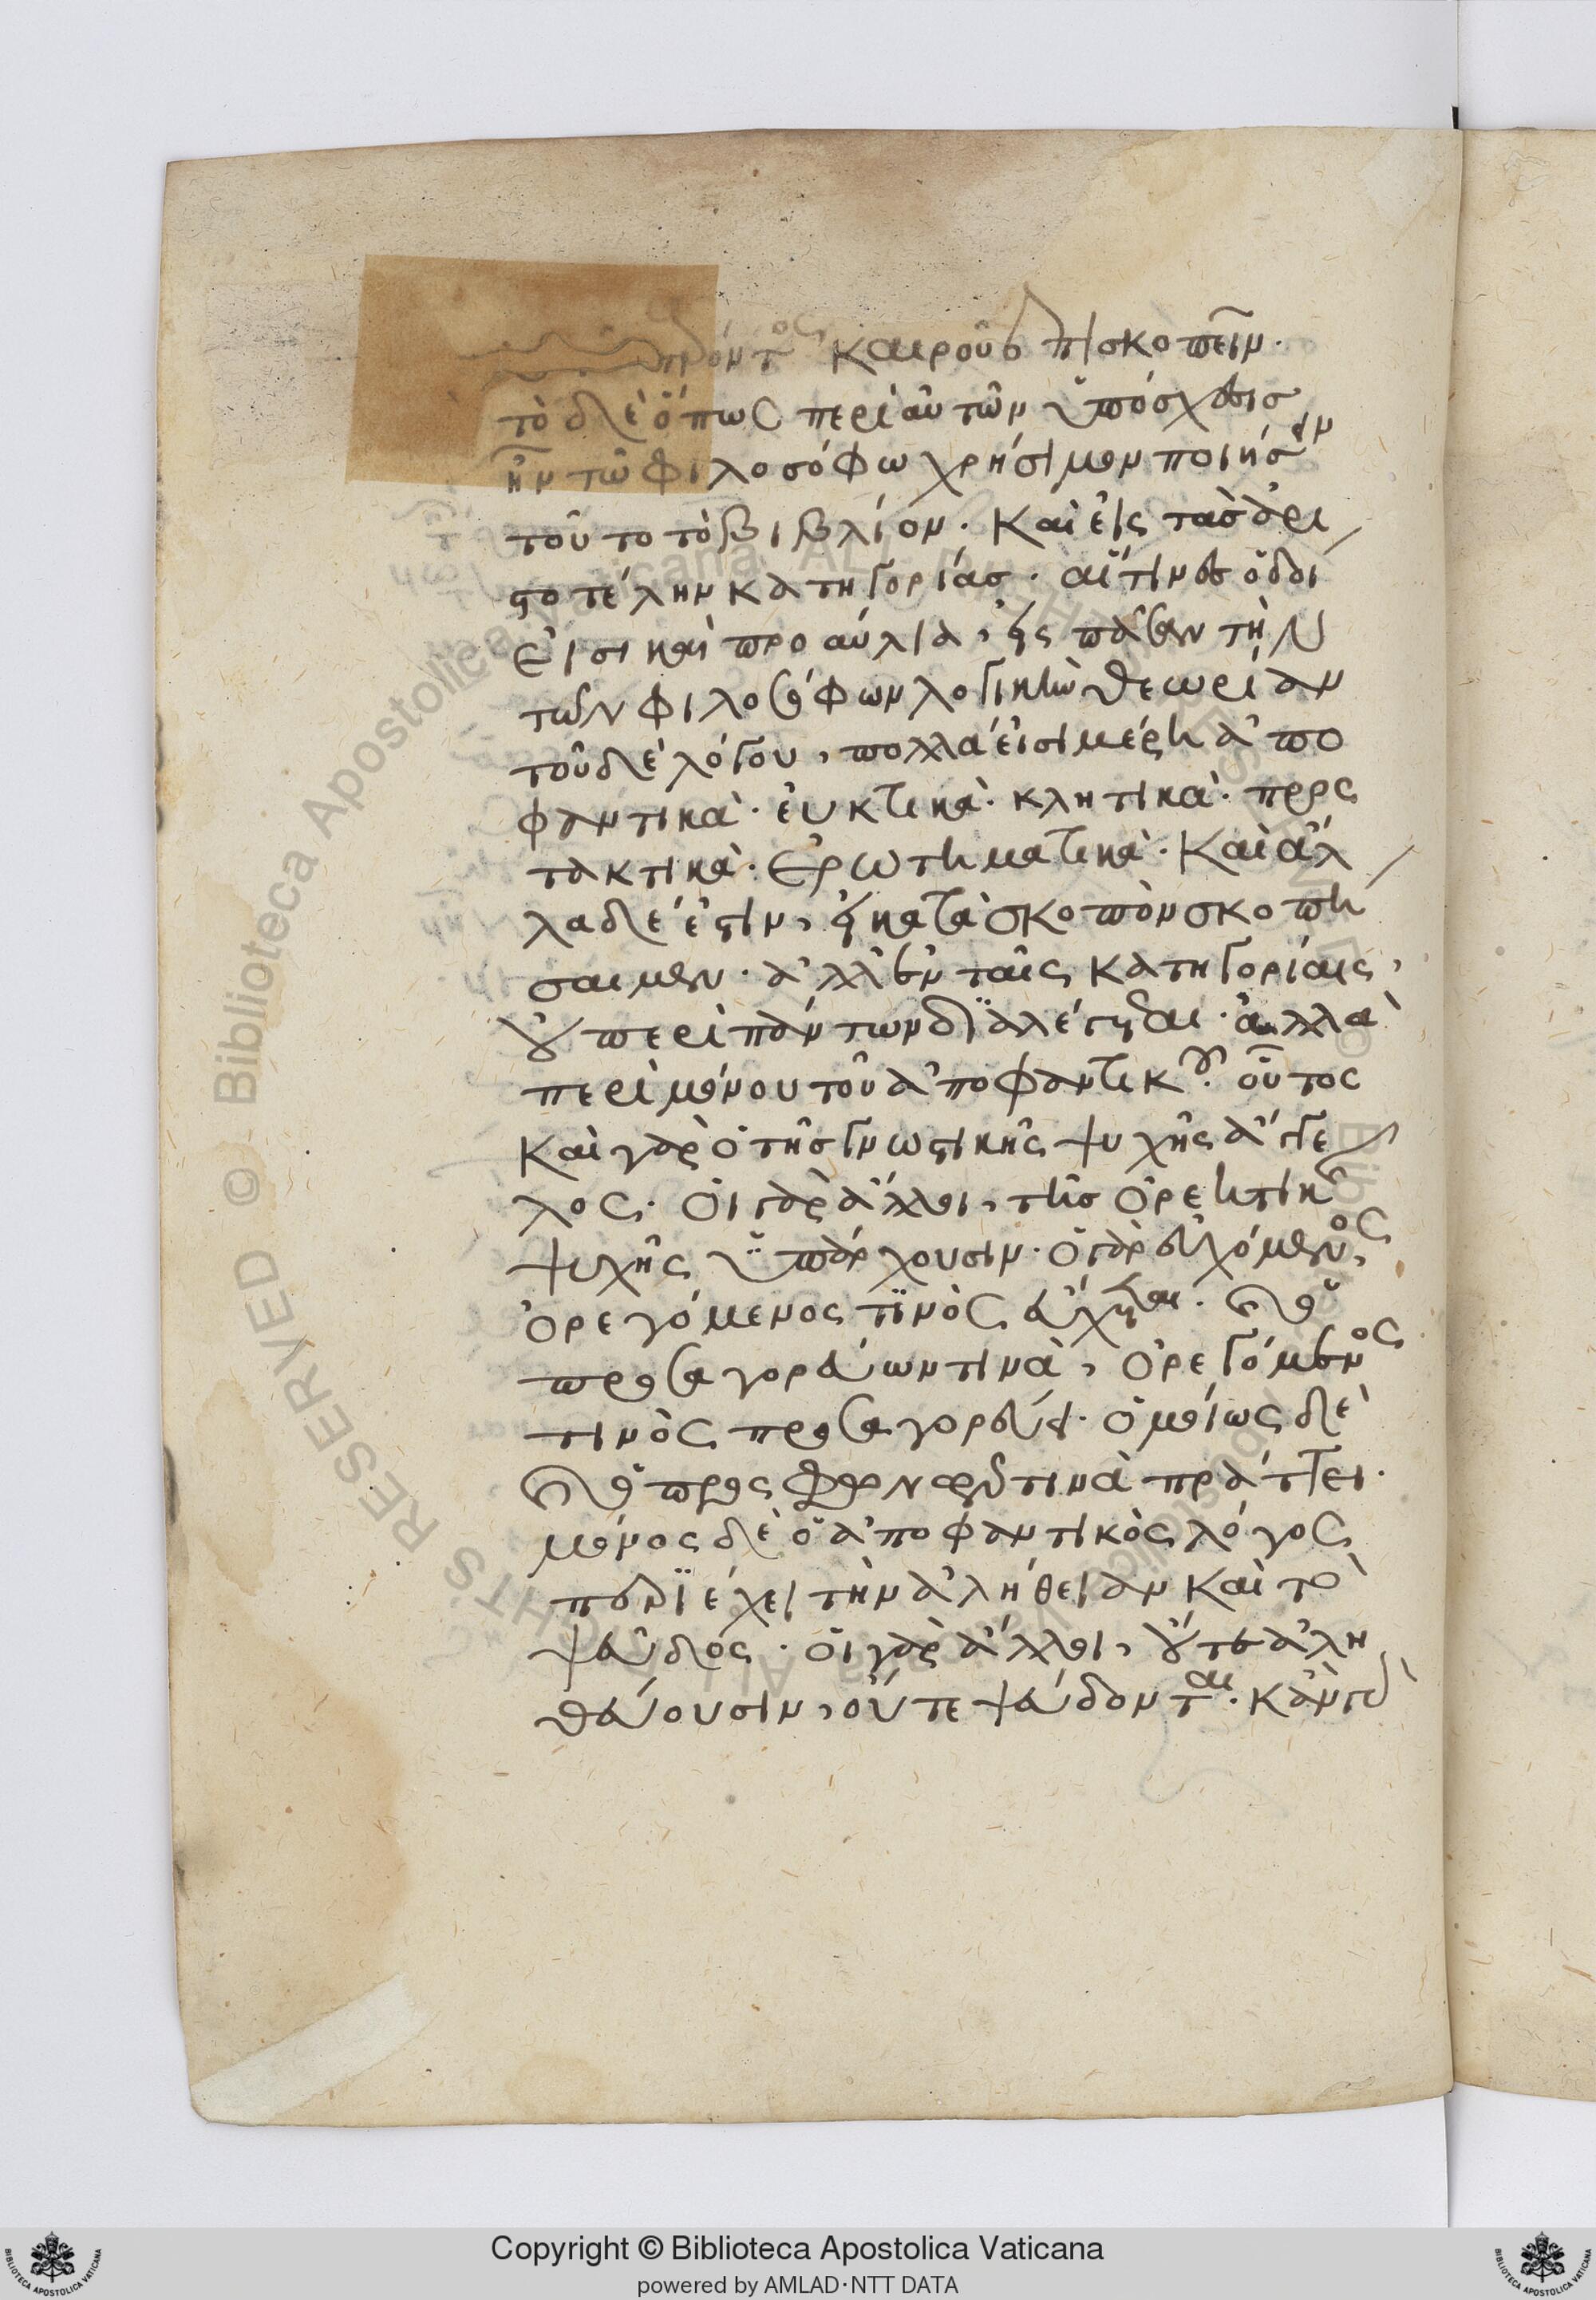 καιροῦ ἐπισκοπεῖν.
τὸ δὲ ὅπως περὶ αὐτῶν ὑπόσχεσις
ἦν τῶ φιλοσόφω χρήσιμον ποιήσειν
τοῦτο τὸ βιβλίον. Καὶ εἰς τὰς ἀρι
στοτέλην κατηγορίας. αἵτινες ὁδοί
εἰσι καὶ προαύλια, εἰς πᾶσαν τὴν
τῶν φιλοσόφων λογικὴν θεωρίαν
τοῦ δὲ λόγου, πολλά εἰσι μέρη ἀπο
φαντικὰ. εὐκτικὰ. κλητικὰ. προς
τακτικὰ. Ἐρωτηματικὰ. Καὶ ἄλ
λα δέ ἐστιν, εἰ κατὰ σκοπὸν σκοπή
σαιμεν. ἀλλ' ἐν ταῖς κατηγορίαις,
οὐ περὶ πάντων διαλέγεται. ἀλλὰ
περὶ μόνου τοῦ ἀποφαντικοῦ. οὗτος
Καὶ γὰρ ὁ τῆς γνωστικῆς ψυχῆς ἄγγε
λος. Οἱ γὰρ ἄλλοι, τῆς ὀρεκτικῆς
ψυχῆς ὑπάρχουσιν. ὁ γὰρ εὐχόμενος,
ὀρεγόμενος τινὸς εὔχεται. καὶ ὁ
προσαγορεύων τινὰ, ὀρεγόμενος
τινὸς προσαγορεύει. ὁμοίως δὲ
καὶ ὁ προς τινὰ πράττει.
μόνος δὲ ὁ ἀποφαντικὸς λόγος
περιέχει τὴν ἀλήθειαν Καὶ τὸ
ψεῦδος. οἱ γὰρ ἄλλοι, οὔτε ἀλη
θεύουσιν, οὔτε ψεύδονται. κἀν τοῖς